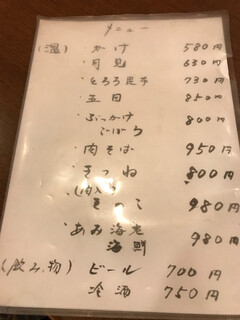 メニュー
(温) かけ 580円
・月見 630円
・とろろ昆布 730円
・五目 850円
・ぶっかけ
ごぼう 800円
・肉そば 950円
・きつね 800円
(肉入り)
きつね 980円
・あみ海老
海鮮 980円
(飲み物) ビール 700円
冷酒 750円